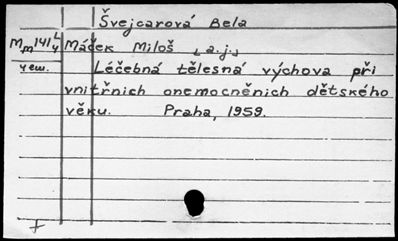 Švejcarová Bela
Máček Miloš [a.j.]
чеш. Léčebná tělesná výchova při
vnitřních onemocněních dětského
věku. Praha, 1959.